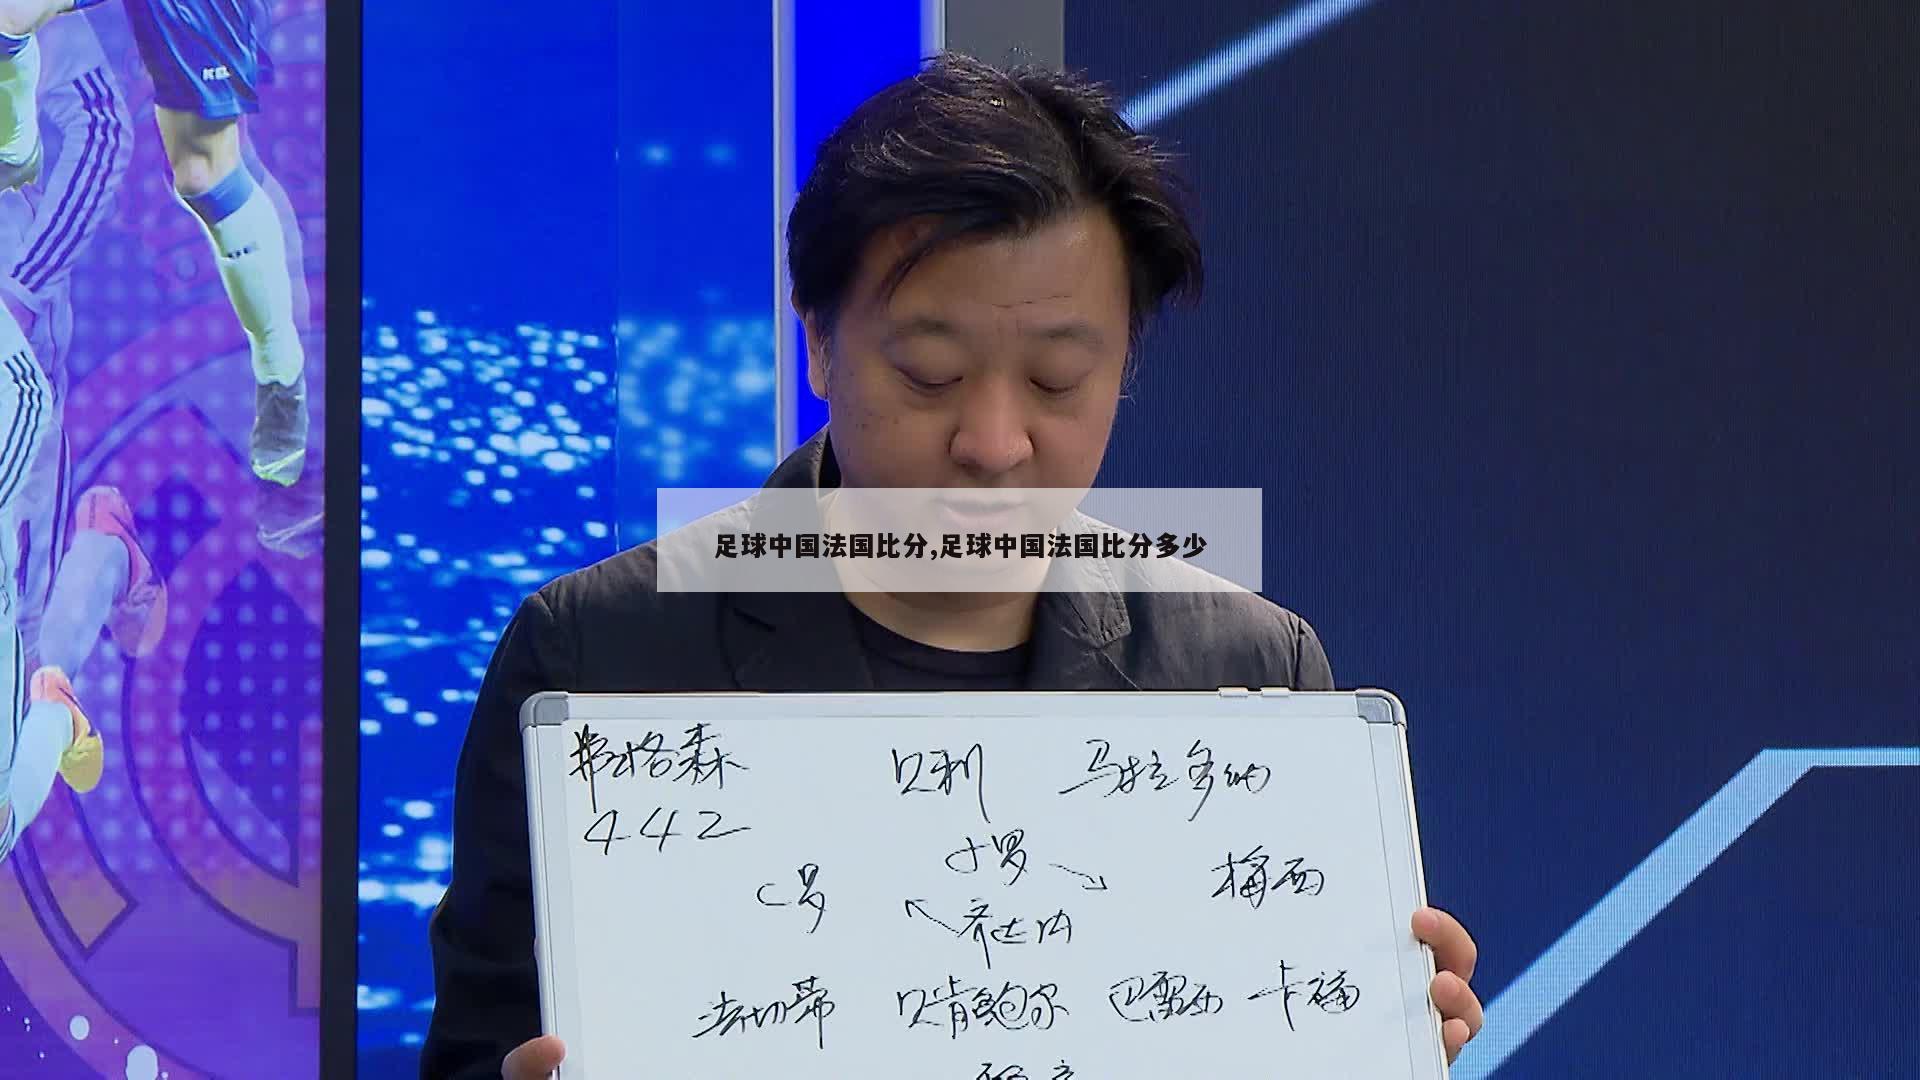 足球中国法国比分,足球中国法国比分多少
弗格森 贝利 马拉多纳
442
C罗 小罗 梅西
齐达内
法切蒂 贝肯鲍尔 巴雷西 卡福